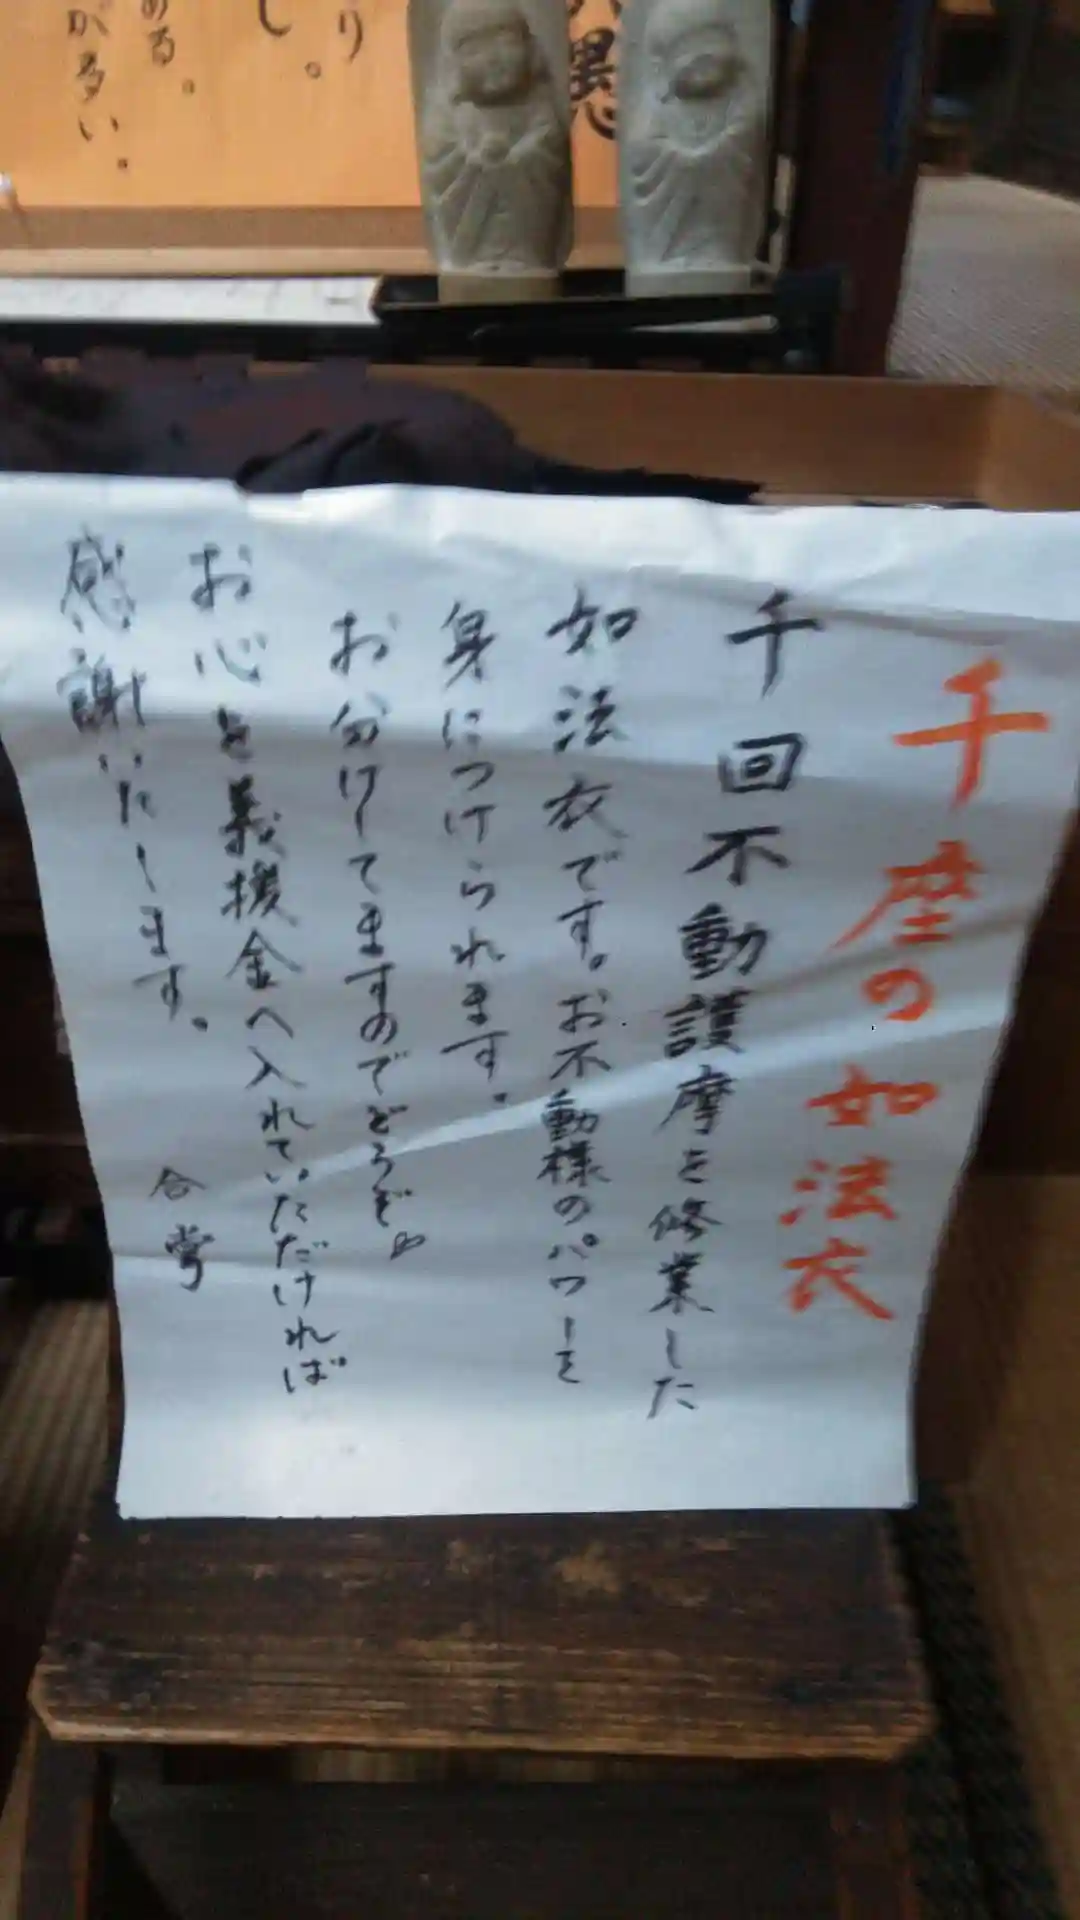 千座の如法衣
千回不動護摩を修業した
如法衣です。お不動様のパワーを
身につけられます。
お分けしてますのでどうぞ。
お心を義援金へ入れていただければ
感謝いたします。
合掌
り
し。
める。
がるい。